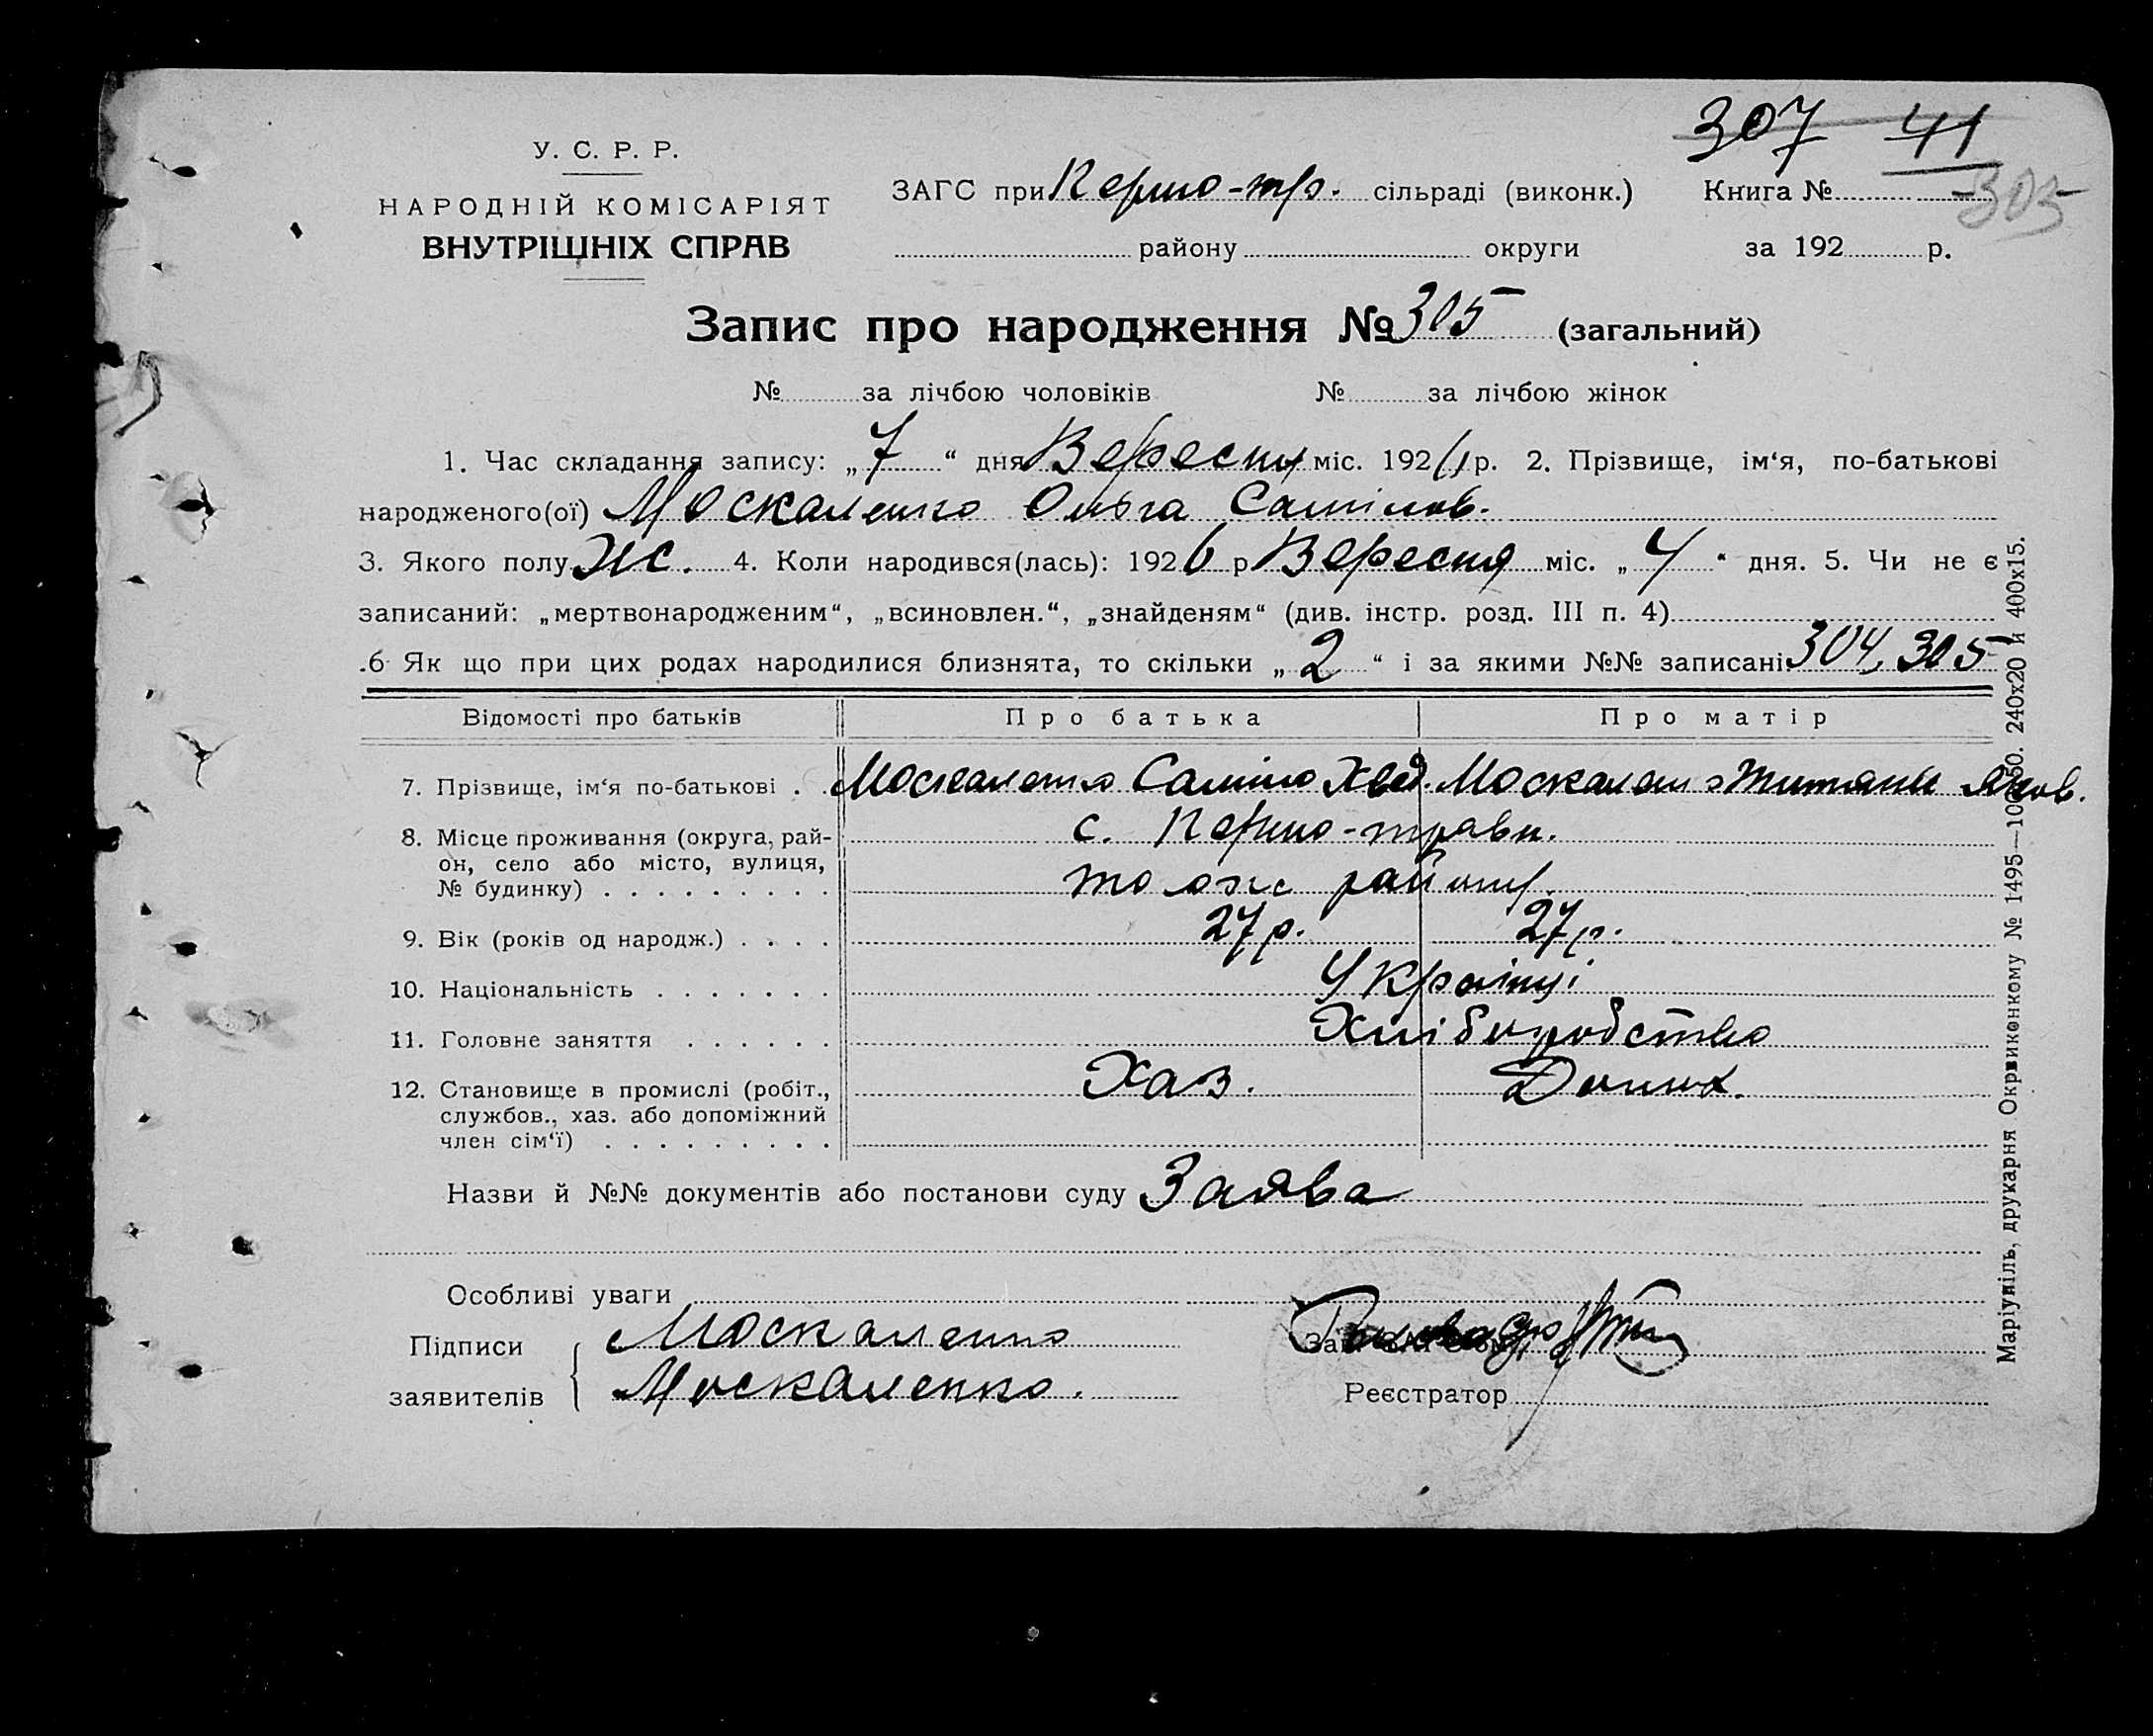 307 41
У. С. Р. Р.
НАРОДНІЙ КОМІСАРІЯТ
ВНУТРІШНІХ СПРАВ
ЗАГС при Першо-тр. сільраді (виконк.) Книга №
303
району округи за 192 р.
Запис про народження № 305 (загальний)
№ за лічбою чоловіків № за лічбою жінок
1. Час складання запису: „7“ дня Вересня міс. 1926 р. 2. Прізвище, ім‘я, по-батькові
народженого(ої) Москаленко Ольга
3. Якого полу Ж. 4. Коли народився(лась): 1926 р Вересня міс. „4“ дня. 5. Чи не є
записаний: „мертвонародженим“, „всиновлен.“, „знайденям“ (див. інстр. розд. III п. 4)
.6 Як що при цих родах народилися близнята, то скільки „2“ і за якими №№ записані 304, 305
Відомості про батьків Про батька Про матір
7. Прізвище, ім‘я по-батькові . . Москаленко Хвед. Москаленко Яков.
8. Місце проживання (округа, рай-
он, село або місто, вулиця,
№ будинку) . . . . . . . . .
с. Першо-травн.
того ж району.
9. Вік (років од народж.) . . . . 27 р. 27 р.
10. Національність . . . . . . . Українці
11. Головне заняття . . . . . . Хліборобство
12. Становище в промислі (робіт.,
службов., хаз. або допоміжний
член сім‘ї) . . . . . . . . .
Хаз. Допом.
Назви й №№ документів або постанови суду Заява
Особливі уваги
Підписи
заявителів
Москаленко
Москаленко.
Реєстратор
Маріупіль, друкарня Окрвиконкому № 1495—100.50. 240x20 й 400x15.